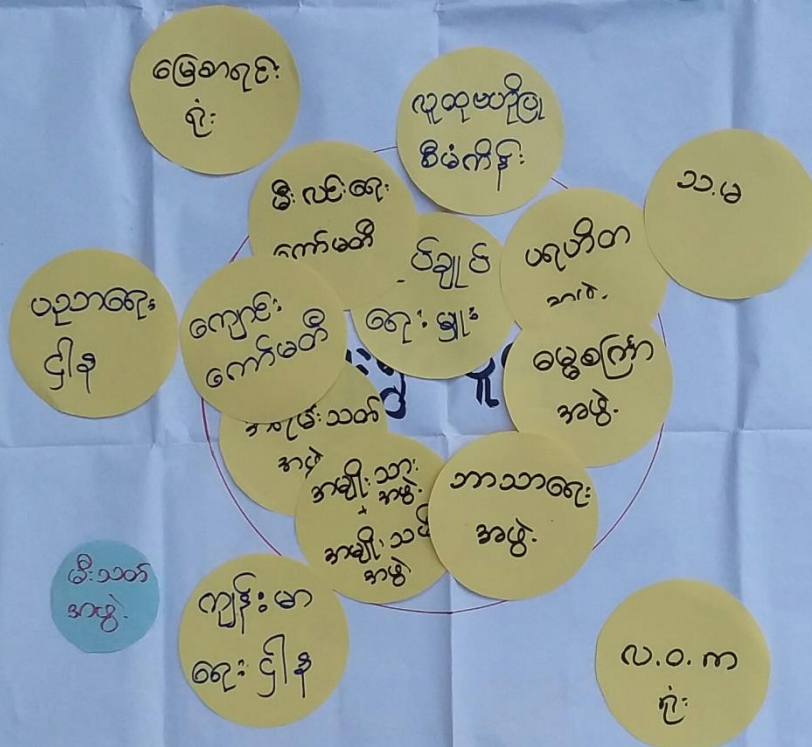 မြေစာရင်း
ရုံး
လူထုဗဟိုပြု
စီမံကိန်း
သ.မ
မီးလင်းရေး
ကော်မတီ
ပရဟိတ
အဖွဲ့
အုပ်ချုပ်
ရေးမှူး
ပညာရေး
ဌာန
ကျောင်း
ကော်မတီ
ဓမ္မစကြာ
အဖွဲ့
အရန်မီးသတ်
အဖွဲ့
အမျိုးသား
အဖွဲ့
+
အမျိုးသမီး
အဖွဲ့
ဘာသာရေး
အဖွဲ့
မီးသတ်
အဖွဲ့
ကျန်းမာ
ရေးဌာန
လ.ဝ.က
ရုံး